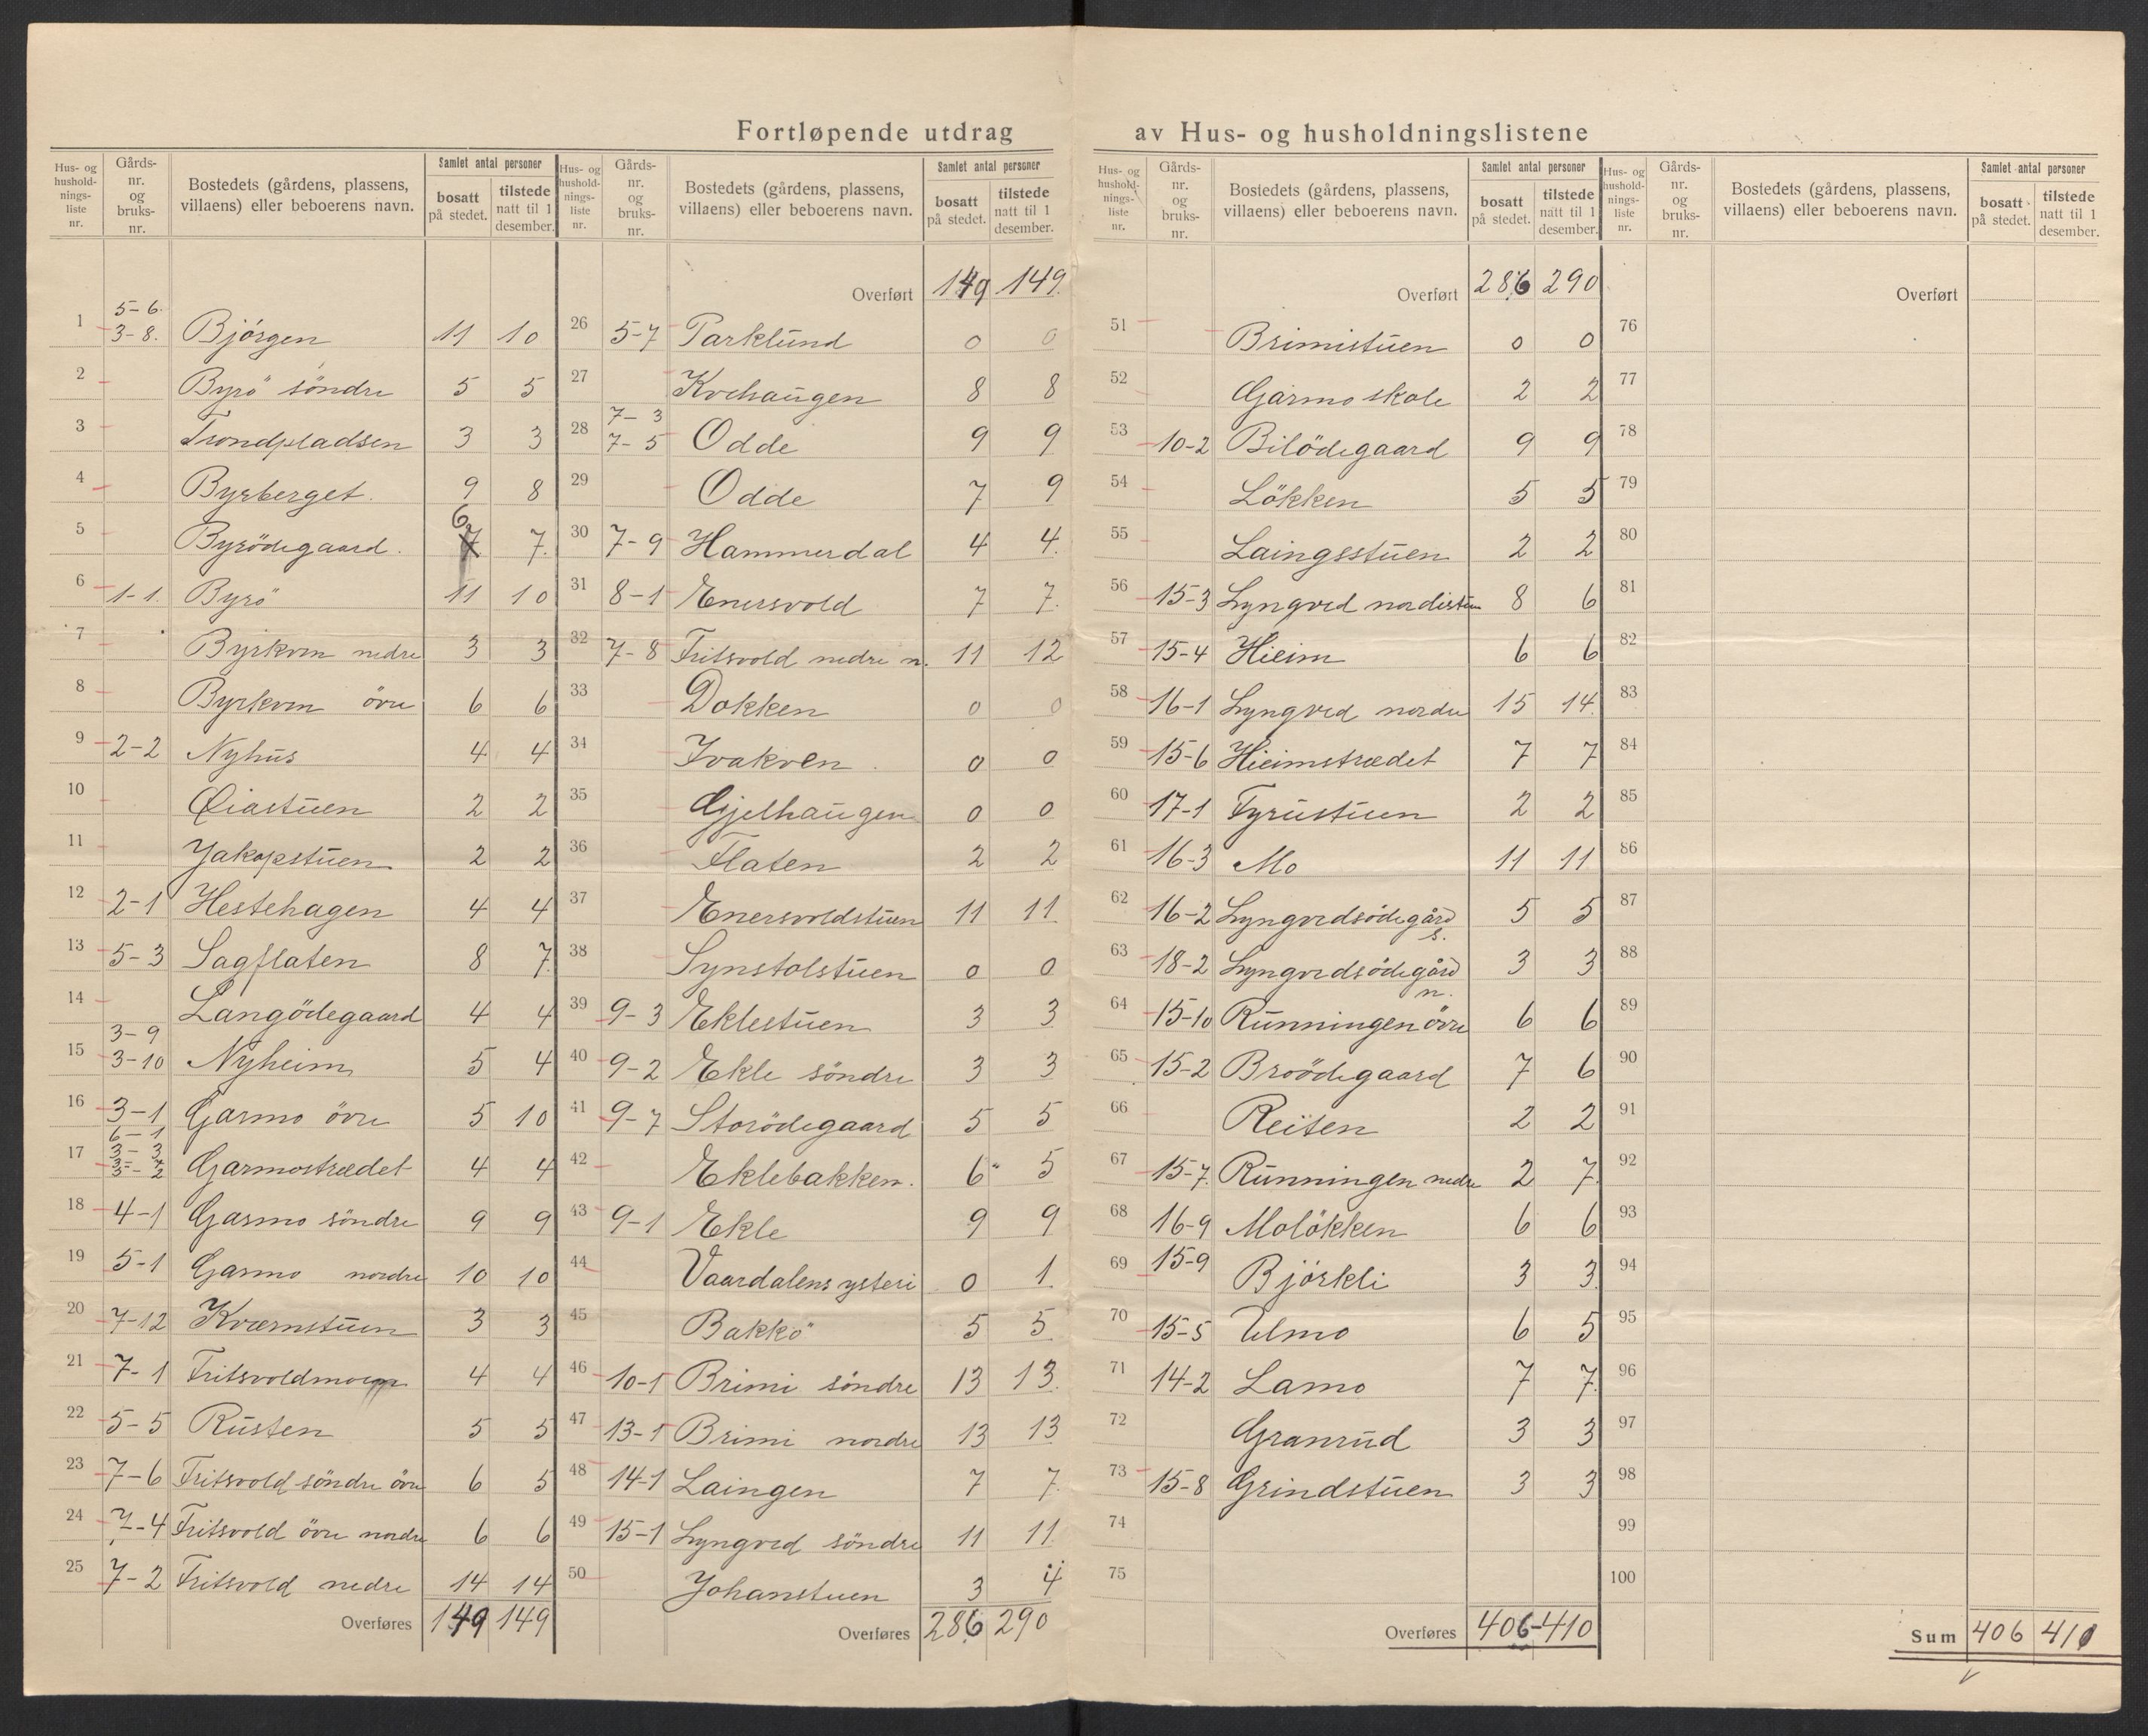 Fortløpende utdrag av Hus- og husholdningslistene
Hus- og husholdnings-liste nr. | Gårds-nr. og bruks-nr. | Bostedets (gårdens, plassens, villaens) eller beboerens navn. | Samlet antal personer | bosatt på stedet. | tilstede natt til 1 desember.
1 5-6. 3-8. Bjórgen 11 10
2 Byrö söndre 5 5
3 Trondpladsen 3 3
4 Byrberget. 9 8
5 Byrödegaard. 6 7 7.
6 1-1. Byrö 11 10
7 Byrkvm nedre 3 3
8 Byrkvm övre 6 6
9 2-2 Nyhus 4 4
10 Öiastuen 2 2
11 Jakopstuen 2 2
12 2-1 Hestehagen 4 4
13 5-3 Sagflaten 8 7.
14 Langödegaard 4 4
15 3-9 3-10 Nyheim 5 4
16 3-1 Garmo övre 5 10
17 6-1 3-3 Garmostrædet 4 4
18 4-1 Garmo söndre 9 9
19 5-1 Garmo nordre 10 10
20 7-12 Kværnstuen 3 3
21 7-1 Fritsvoldmoen 4 4
22 5-5 Rusten 5 5
23 7-6 Fritsvold söndre övre 6 5
24 7-4 Fritsvold övre nordre 6 6
25 7-2 Fritsvold nedre 14 14
Overføres 149 149
Hus- og husholdnings-liste nr. | Gårds-nr. og bruks-nr. | Bostedets (gårdens, plassens, villaens) eller beboerens navn. | Samlet antal personer | bosatt på stedet. | tilstede natt til 1 desember.
Overført 149 149.
26 5-7 Parklund 0 0
27 Kvehaugen 8 8
28 7-3 7-5 Odde 9 9
29 Odde 7 9
30 7-9 Hammerdal 4 4.
31 8-1 Enersvold 7 7.
32 7-8 Fritsvold nedre n. 11 12
33 Dokken 0 0
34 Ivakven. 0 0
35 Gjelhaugen 0 0
36 Flaten 2 2
37 Enersvoldstuen 11 11.
38 Synstolstuen 0 0
39 9-3 Eklestuen 3 3
40 9-2 Ekle söndre 3 3
41 9-7 Storödegaard 5 5
42 Eklebakken. 6 5
43 9-1 Ekle 9 9
44 Vaardalens ysteri 0 1.
45 Bakkö 5 5
46 10-1 Brimi söndre 13 13.
47 13-1 Brimi nordre 13 13
48 14-1 Laingen 7 7.
49 15-1 Lyngved söndre 11 11.
50 Johanstuen 3 4
Overføres 286 290
Hus- og husholdnings-liste nr. | Gårds-nr. og bruks-nr. | Bostedets (gårdens, plassens, villaens) eller beboerens navn. | Samlet antal personer | bosatt på stedet. | tilstede natt til 1 desember.
Overført 286 290
51 Brimistuen 0 0
52 Garmo skole 2 2
53 10-2 Bilödegaard 9 9
54 Lökken 5 5
55 Laingsstuen 2 2
56 15-3 Lyngved nordistuen 8 6
57 15-4 Hieim 6 6
58 16-1 Lyngved nordre 15 14.
59 15-6 Hieimstrædet 7 7
60 17-1 Tyrustuen 2 2
61 16-3 Mo 11 11
62 16-2 Lyngvedsödegård s. 5 5
63 18-2 Lyngvedsödegård n. 3 3
64 15-10 Runningen övre 6 6
65 15-2 Broödegaard 7 6
66 Reiten 2 2
67 15-7. Runningen nedre 2 7.
68 16-9 Molökken 6 6
69 15-9 Björkli 3 3.
70 15-5 Ulmo 6 5
71 14-2 Lamo 7 7.
72 Granrud 3 3
73 15-8 Grindstuen 3 3
74
75
Overføres 406-410
Hus- og husholdnings-liste nr. | Gårds-nr. og bruks-nr. | Bostedets (gårdens, plassens, villaens) eller beboerens navn. | Samlet antal personer | bosatt på stedet. | tilstede natt til 1 desember.
Overført
76
77
78
79
80
81
82
83
84
85
86
87
88
89
90
91
92
93
94
95
96
97
98
99
100
Sum 406 410